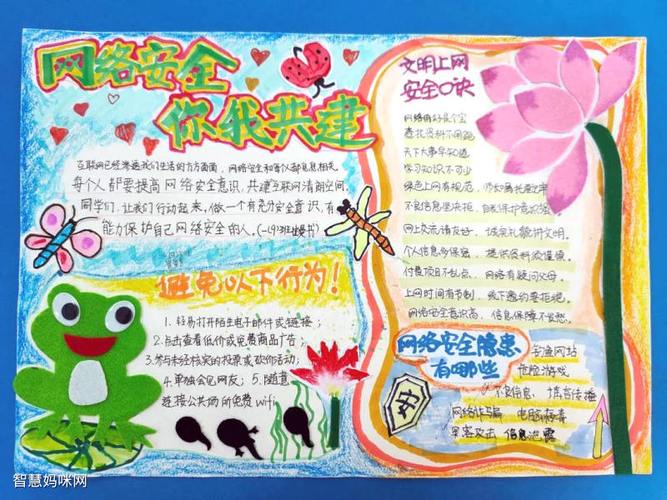 网络安全
你我共建
互联网已经渗透我们生活的方方面面，网络安全和每个人都息息相关
每个人都要提高网络安全意识，共建互联网清朗空间，
同学们，让我们行动起来，做一个有充分安全意识，有
能力保护自己网络安全的人。
避免以下行为！
1. 轻易打开陌生电子邮件或链接；
2. 点击查看低价或免费商品广告；
3. 参与未经核实的投票或砍价活动；
4. 单独会见网友；5. 随意
连接公共场所免费wifi
文明上网
安全口诀
网络自好是个宝
查找资料不用跑
天下大事早知道
学习知识不可少
绿色上网有规范，
不良信息坚决拒，
网上交流请友好，诚实礼貌讲文明。
个人信息多保密，提供资料须谨慎。
付费项目不乱点，网络有疑问父母。
上网时间有节制，线下邀约要拒绝。
网络安全意识高，信息保障不发愁。
网络安全隐患
有哪些
钓鱼网站
危险游戏
不良信息，谣言传播
网络诈骗 电脑病毒
黑客攻击 信息泄露
安
智慧妈咪网